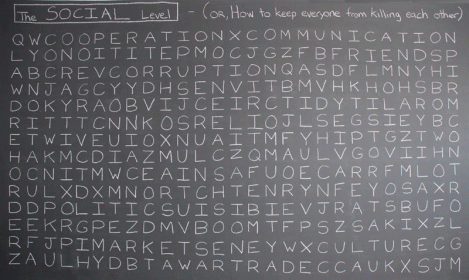 The SOCIAL Level - (OR, How to keep everyone from killing each other)
QWCOOPERATIONXCOMMUNICATION
LYONOITITEPMOCJGZFBFRIENDSP
ABCREVCORRUPTIONQASDFLMNYHI
WNJAGCYYDHSENVITBMVHKHOHSBR
DOKYRAOBVIJCEIRCTIDYTILAROM
RITTTCNNKOSRELIOJLSEGSIEYBC
ETWIVEUIOXNUAITMFYHIPTGZTWO
HAKMCDIAZMULCZQMAULVGOVIIHN
OCNITMWCEAINSAFUOECARRFMLOT
RULXDXMNORTCHTENRYNFEYOSAXR
DDPOLITICSUISIBIEVJRATSBUFO
EEKRGPEZDMVBOOMTFPSZSAKIXZL
RFJPIMARKETSENEYWXCULTURECG
ZAULHYDBTAWARTRADECCAUKXSJM